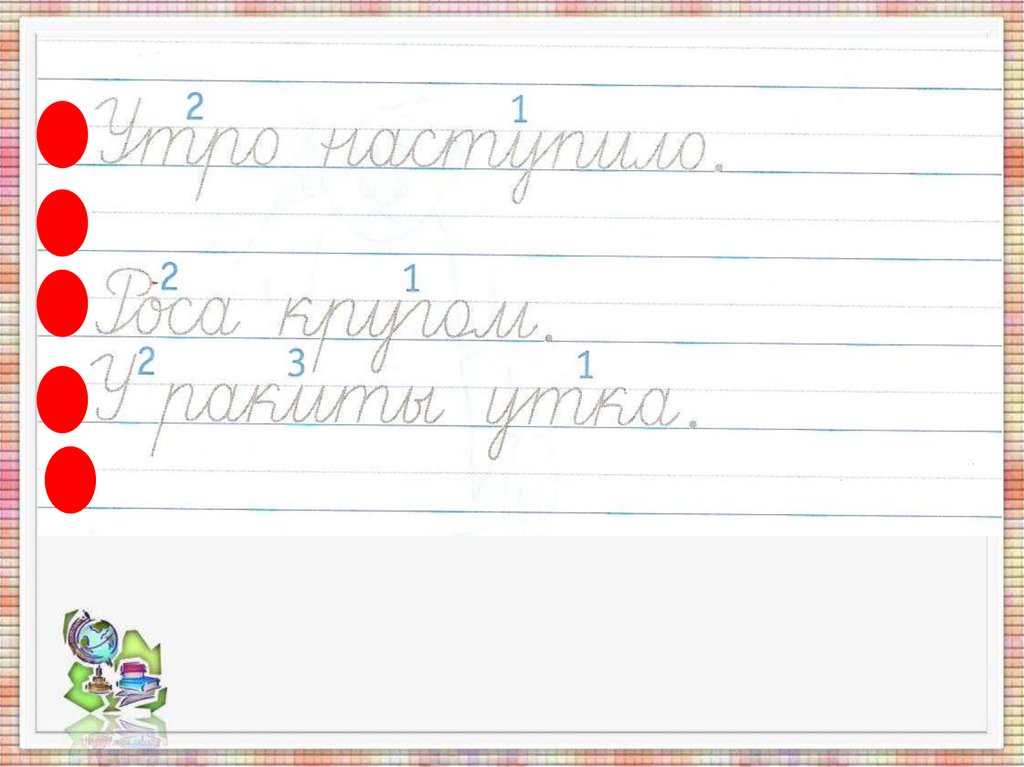 2 1
Утро наступило.
2 1
Роса кругом.
2 3 1
У ракиты утка.